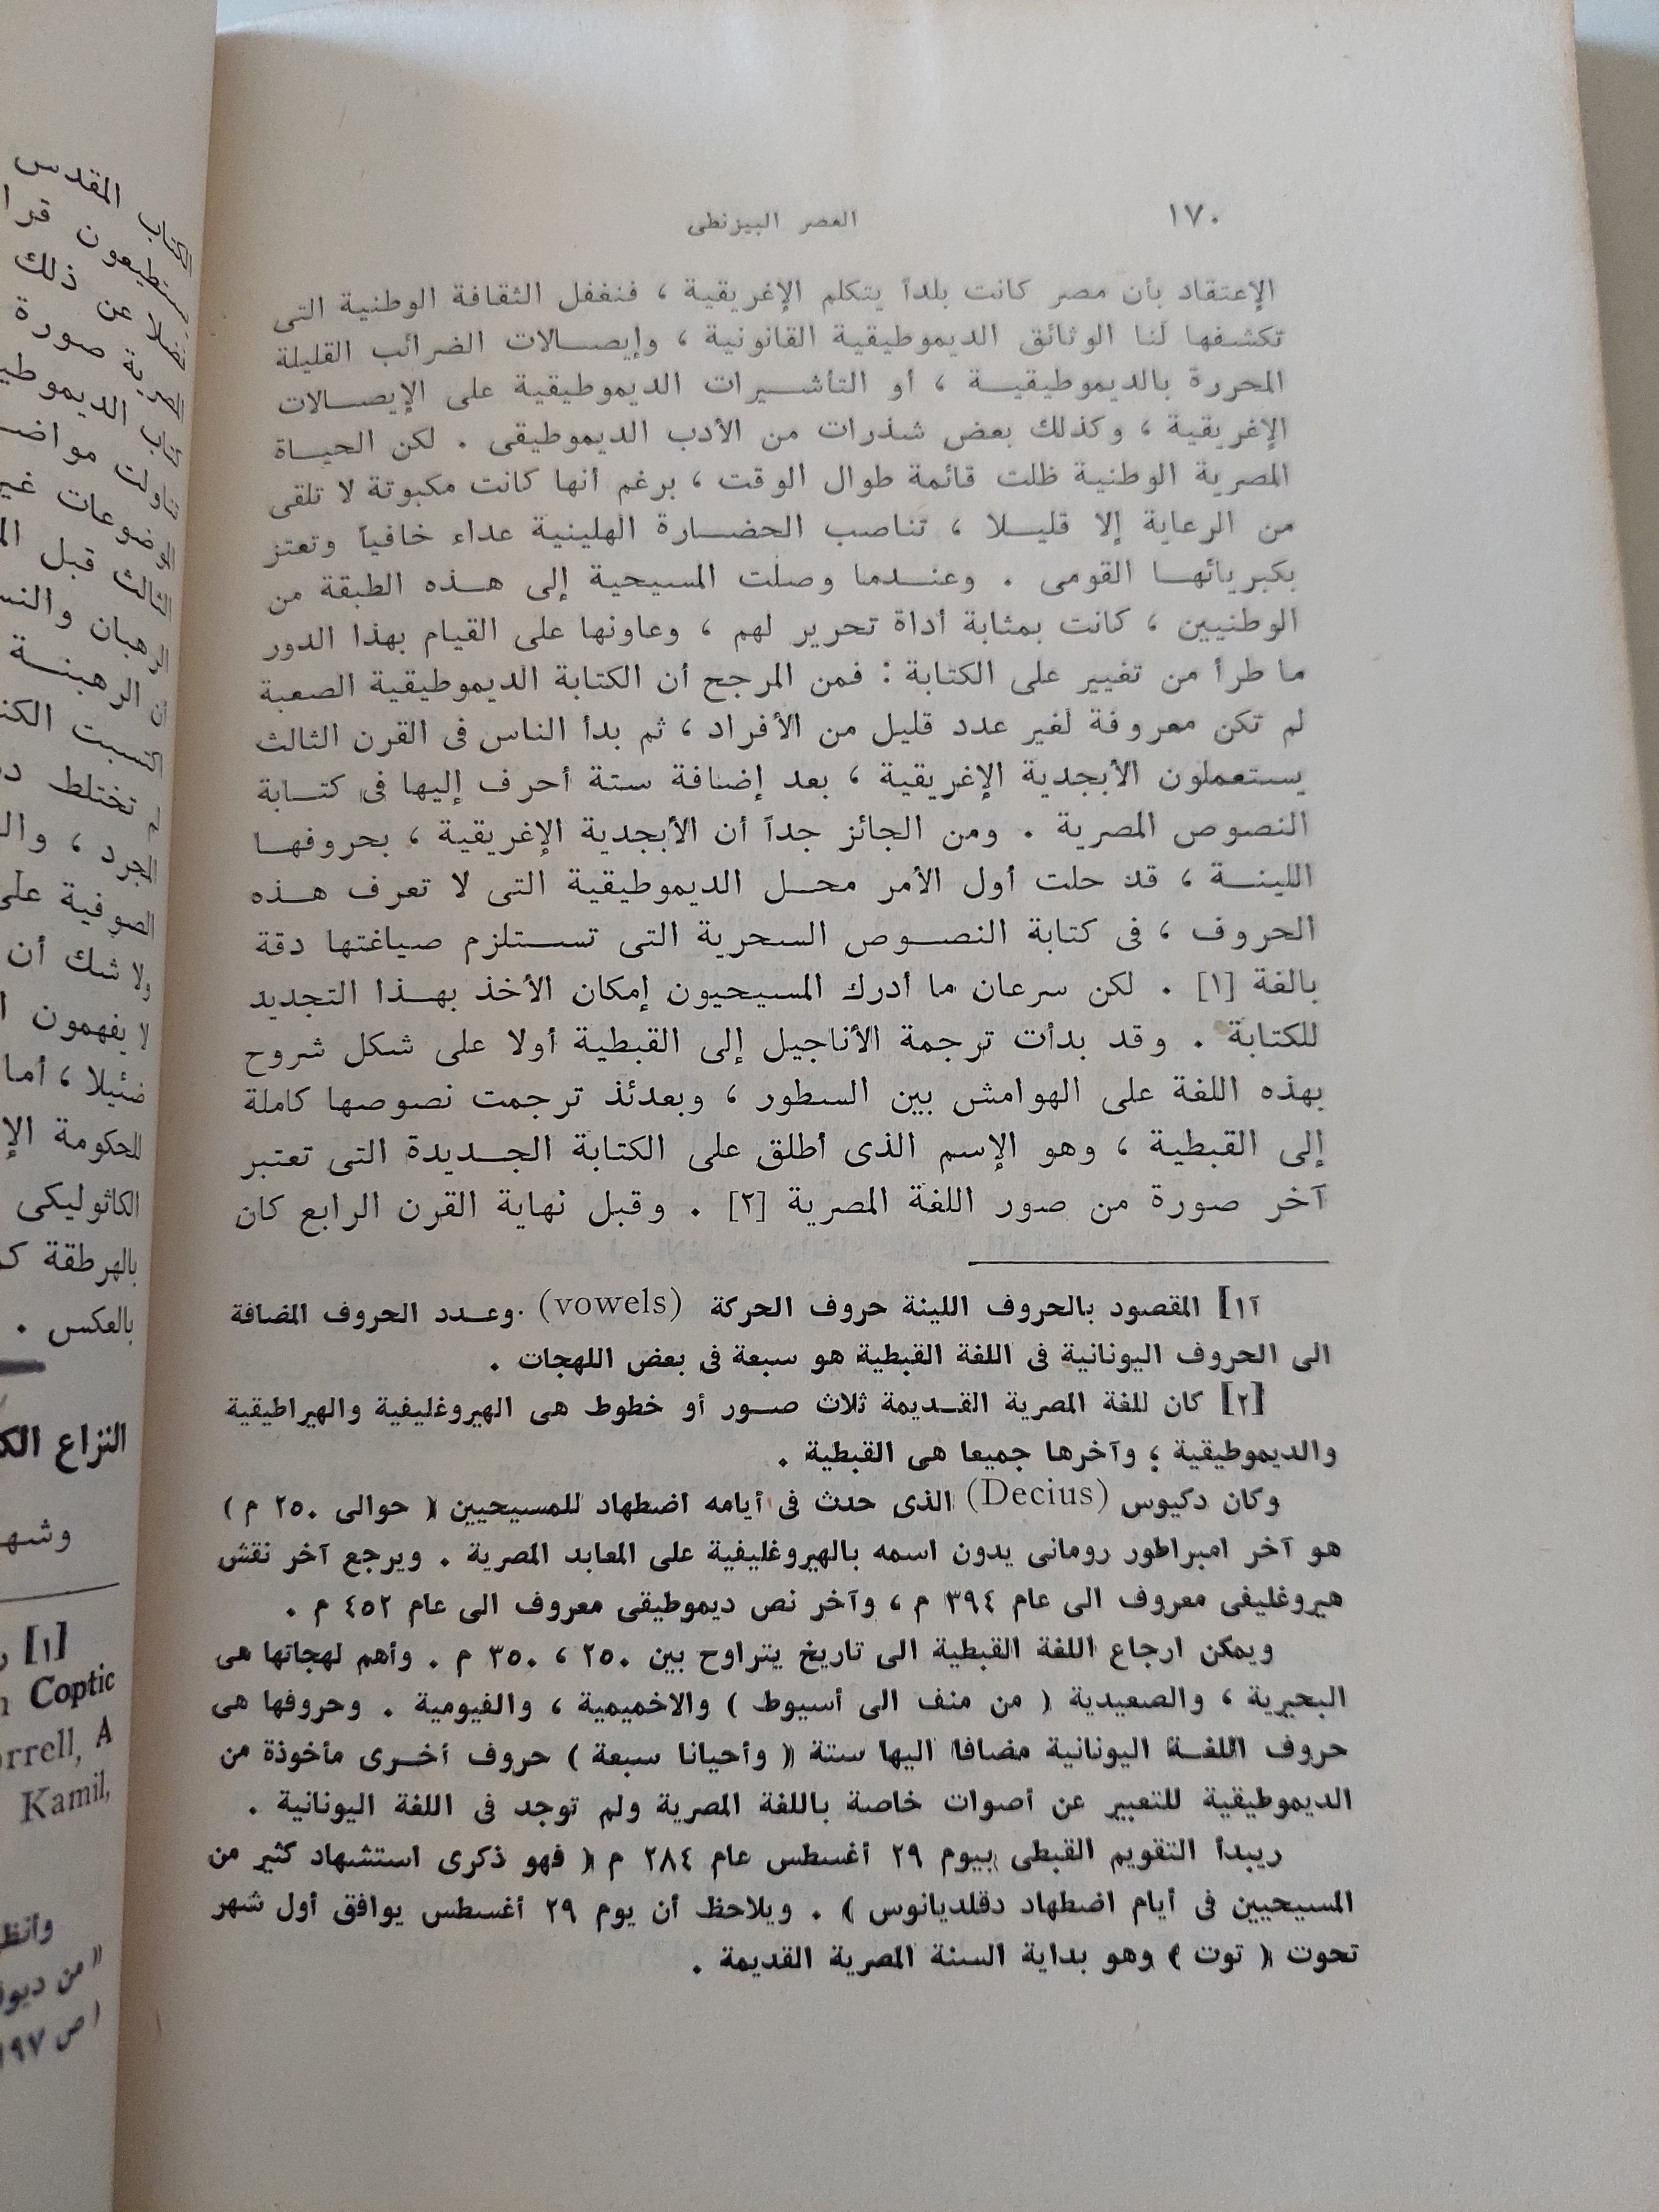 ١٧٠
العصر البيزنطى
الإعتقاد بأن مصر كانت بلداً يتكلم الإغريقية ، فنغفل الثقافة الوطنية التى
تكشفها لنا الوثائق الديموطيقية القانونية ، وإيصالات الضرائب القليلة
المحررة بالديموطيقية ، أو التأشيرات الديموطيقية على الإيصالات
الإغريقية ، وكذلك بعض شذرات من الأدب الديموطيقى . لكن الحياة
المصرية الوطنية ظلت قائمة طوال الوقت ، برغم أنها كانت مكبوتة لا تلقى
من الرعاية إلا قليلا ، تناصب الحضارة الهلينية عداء خافياً وتعتز
بكبريائها القومى . وعندما وصلت المسيحية إلى هذه الطبقة من
الوطنيين ، كانت بمثابة أداة تحرير لهم ، وعاونها على القيام بهذا الدور
ما طرأ من تغيير على الكتابة : فمن المرجح أن الكتابة الديموطيقية الصعبة
لم تكن معروفة لغير عدد قليل من الأفراد ، ثم بدأ الناس فى القرن الثالث
يستعملون الأبجدية الإغريقية ، بعد إضافة ستة أحرف إليها فى كتابة
النصوص المصرية . ومن الجائز جداً أن الأبجدية الإغريقية ، بحروفها
اللينة ، قد حلت أول الأمر محل الديموطيقية التى لا تعرف هذه
الحروف ، فى كتابة النصوص السحرية التى تستلزم صياغتها دقة
بالغة [١] . لكن سرعان ما أدرك المسيحيون إمكان الأخذ بهذا التجديد
للكتابة . وقد بدأت ترجمة الأناجيل إلى القبطية أولا على شكل شروح
بهذه اللغة على الهوامش بين السطور ، وبعدئذ ترجمت نصوصها كاملة
إلى القبطية ، وهو الإسم الذى أطلق على الكتابة الجديدة التى تعتبر
آخر صورة من صور اللغة المصرية [٢] . وقبل نهاية القرن الرابع كان
[١] المقصود بالحروف اللينة حروف الحركة (vowels) . وعدد الحروف المضافة
الى الحروف اليونانية فى اللغة القبطية هو سبعة فى بعض اللهجات .
[٢] كان للغة المصرية القديمة ثلاث صور أو خطوط هى الهيروغليفية والهيراطيقية
والديموطيقية ؛ وآخرها جميعا هى القبطية .
وكان دكيوس (Decius) الذى حدث فى أيامه اضطهاد للمسيحيين ( حوالى ٢٥٠ م )
هو آخر امبراطور رومانى يدون اسمه بالهيروغليفية على المعابد المصرية . ويرجع آخر نقش
هيروغليفى معروف الى عام ٣٩٤ م ، وآخر نص ديموطيقى معروف الى عام ٤٥٢ م .
ويمكن ارجاع اللغة القبطية الى تاريخ يتراوح بين ٢٥٠ ، ٣٥٠ م . وأهم لهجاتها هى
البحيرية ، والصعيدية ( من منف الى أسيوط ) والاخميمية ، والفيومية . وحروفها هى
حروف اللغة اليونانية مضافا اليها ستة ( وأحيانا سبعة ) حروف أخرى مأخوذة من
الديموطيقية للتعبير عن أصوات خاصة باللغة المصرية ولم توجد فى اللغة اليونانية .
ريبدأ التقويم القبطى بيوم ٢٩ أغسطس عام ٢٨٤ م ( فهو ذكرى استشهاد كثير من
المسيحيين فى أيام اضطهاد دقلديانوس ) . ويلاحظ أن يوم ٢٩ أغسطس يوافق أول شهر
تحوت ( توت ) وهو بداية السنة المصرية القديمة .
الكتاب المقدس
عن ذلك
صورة
لم تختلط
الصوفية على
ولا شك أن
لا يفهمون
ضئيلا ، أما
للحكومة
الكاثوليكى
بالهرطقة
بالعكس .
النزاع
[١]
Coptic
A
Kamil,
« من